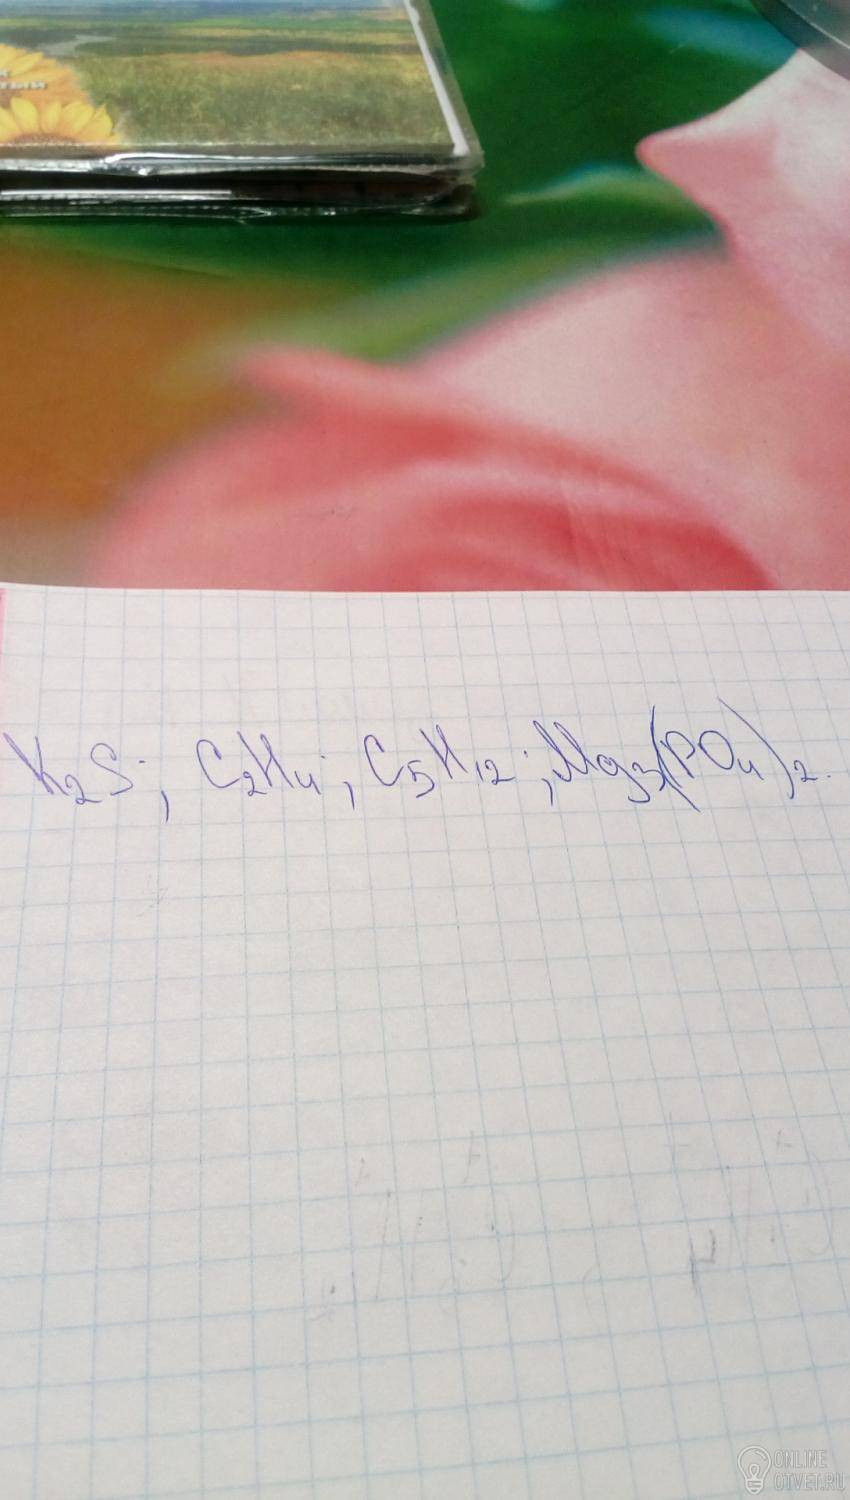 тый
K₂S; C₂H₄; C₅H₁₂; Mg₃(PO₄)₂.
ONLINE
OTVET.RU